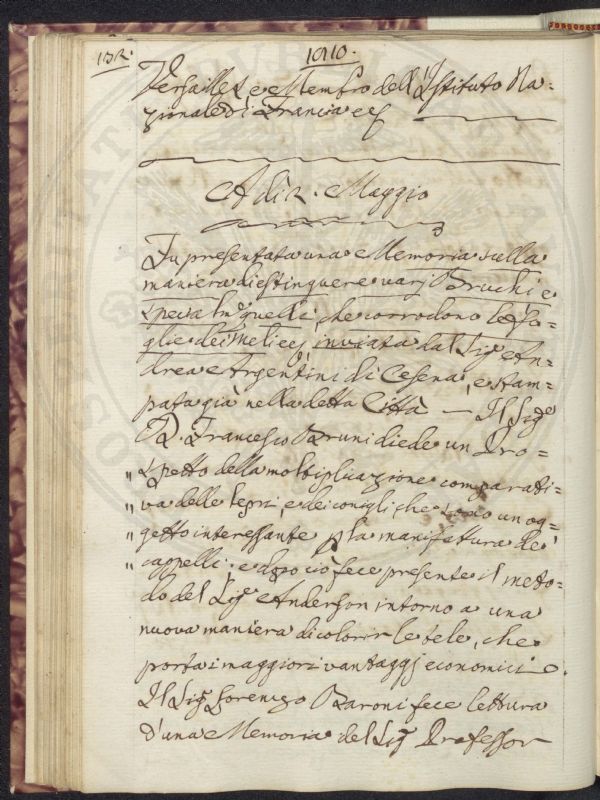 132.
1810.
Versailles e Membro dell'Istituto Na=
zionale di Francia ec
A di 2. Maggio
Fu presentata una Memoria sulla
maniera distinguere varj Bruchi e
specialm.e quelli, che corrodono le fo=
glie dei Meli ec; inviata dal Sig.e An=
drea Argentini di Cesena, e stam=
pata già nella detta Città — Il Sig.e
D. Francesco Bruni diede un Pro=
" spetto della moltiplicazione comparati=
" va delle lepri e dei conigli, che sono un og=
" getto interessante p la manifattura de'
" cappelli; e dopo ciò fece presente il meto=
do del Sig.e Anderson intorno a una
nuova maniera di colorir le tele, che
porta i maggiori vantaggj economici.
Il Sig.e Lorenzo Baroni fece lettura
d'una Memoria del Sig.e Professor